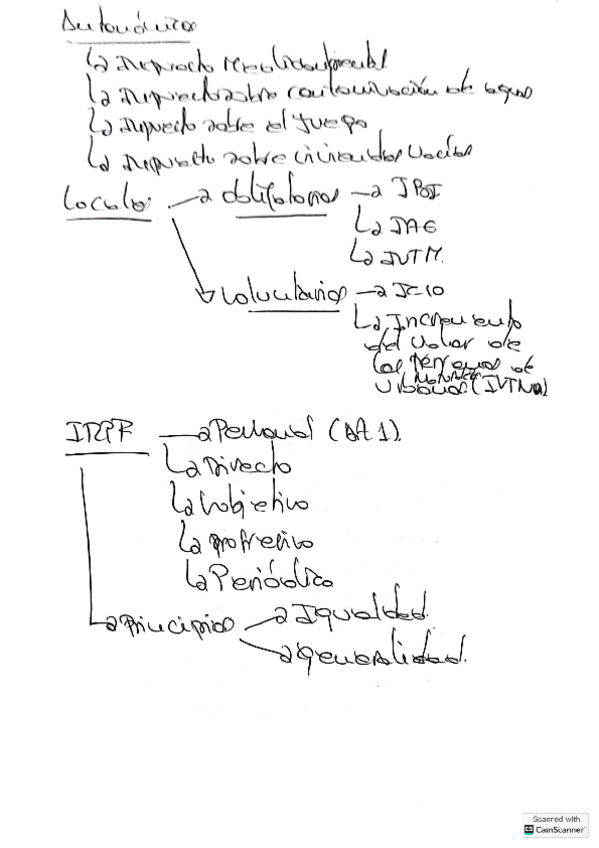 Autonómicos
↳ Impuesto medioambiental
↳ Impuesto sobre contaminación de aguas
↳ Impuesto sobre el juego
↳ Impuesto sobre viviendas vacías
Locales → obligatorios → IBI
↳ IAE
↳ IVTM.
↳ voluntarios → ICIO
↳ Incremento
del valor de
los terrenos de
naturaleza
urbana (IVTNU)
IRPF → Personal (art 1).
↳ Directo
↳ Subjetivo
↳ progresivo
↳ Periódico
↳ Principios → Igualdad.
→ generalidad.
Scanned with
CamScanner